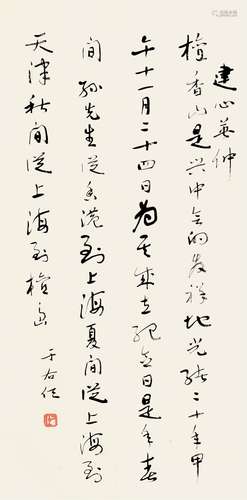 建心英仲
檀香山是兴中会的发祥地光绪二十年甲
午十一月二十四日为其成立纪念日是年春
间孙先生从香港到上海夏间从上海到
天津秋间从上海到檀岛
于右任